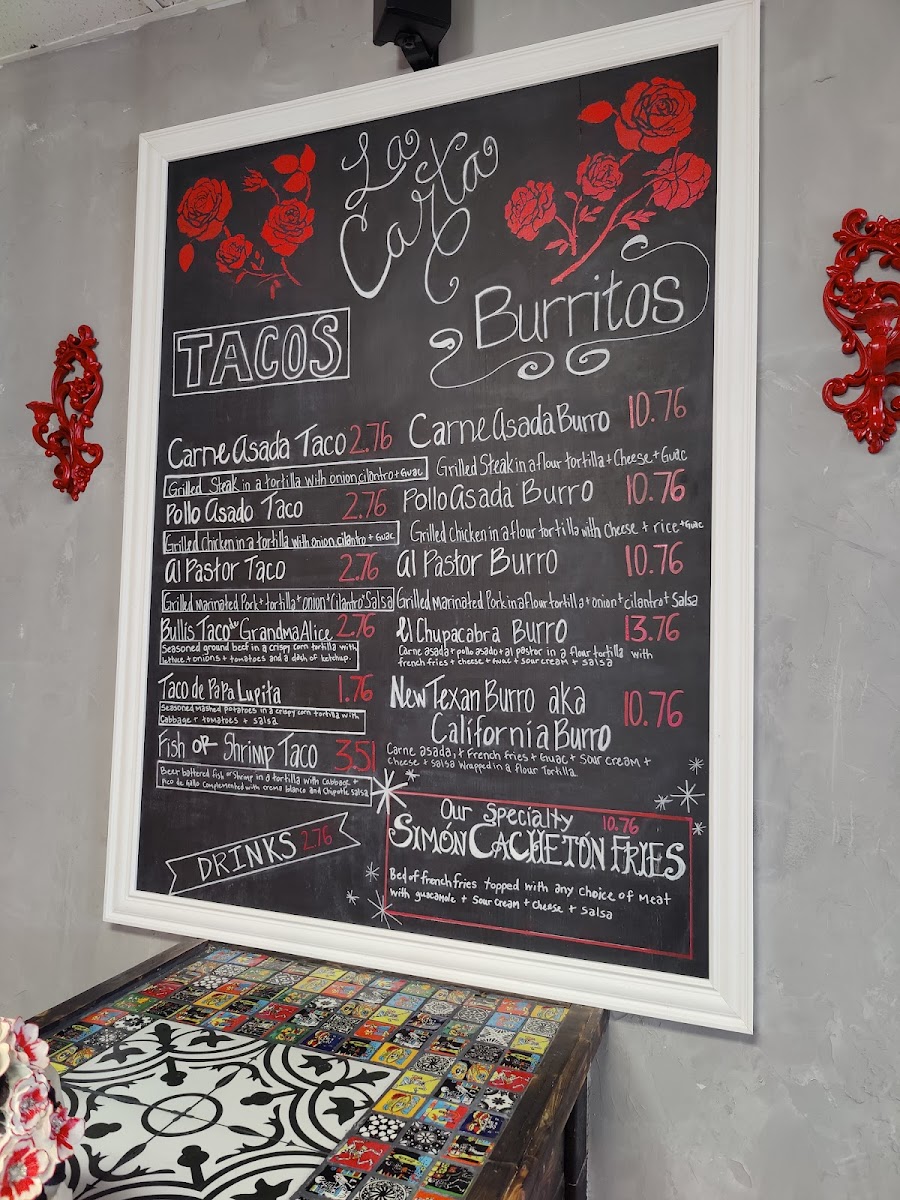 La
Carta
TACOS
Carne Asada Taco 2.76
Grilled Steak in a tortilla with onion, cilantro + Guac
Pollo Asado Taco 2.76
Grilled Chicken in a tortilla with onion, cilantro + Guac
Al Pastor Taco 2.76
Grilled Marinated Pork + tortilla + onion + cilantro + Salsa
Bullis Taco de Grandma Alice 2.76
Seasoned ground beef in a crispy corn tortilla with
lettuce + onions + tomatoes and a dash of ketchup.
Taco de Papa Lupita 1.76
Seasoned mashed potatoes in a crispy corn tortilla with
Cabbage + tomatoes + salsa
Fish or Shrimp Taco 3.51
Beer battered fish or Shrimp in a tortilla with Cabbage +
Pico de Gallo Complemented with crema blanco and Chipotle salsa
DRINKS 2.76
Burritos
Carne Asada Burro 10.76
Grilled Steak in a flour tortilla + Cheese + Guac
Pollo Asada Burro 10.76
Grilled Chicken in a flour tortilla with Cheese + rice + Guac
Al Pastor Burro 10.76
Grilled Marinated Pork in a flour tortilla + onion + cilantro + Salsa
El Chupacabra Burro 13.76
Carne asada + pollo asado + al pastor in a flour tortilla with
french fries + cheese + Guac + sour cream + salsa
New Texan Burro aka
California Burro 10.76
Carne asada, + French Fries + Guac + Sour Cream +
Cheese + Salsa Wrapped in a Flour Tortilla
Our Specialty 10.76
SIMÓN CACHETÓN FRIES
Bed of french fries topped with any choice of Meat
with guacamole + Sour Cream + Cheese + Salsa